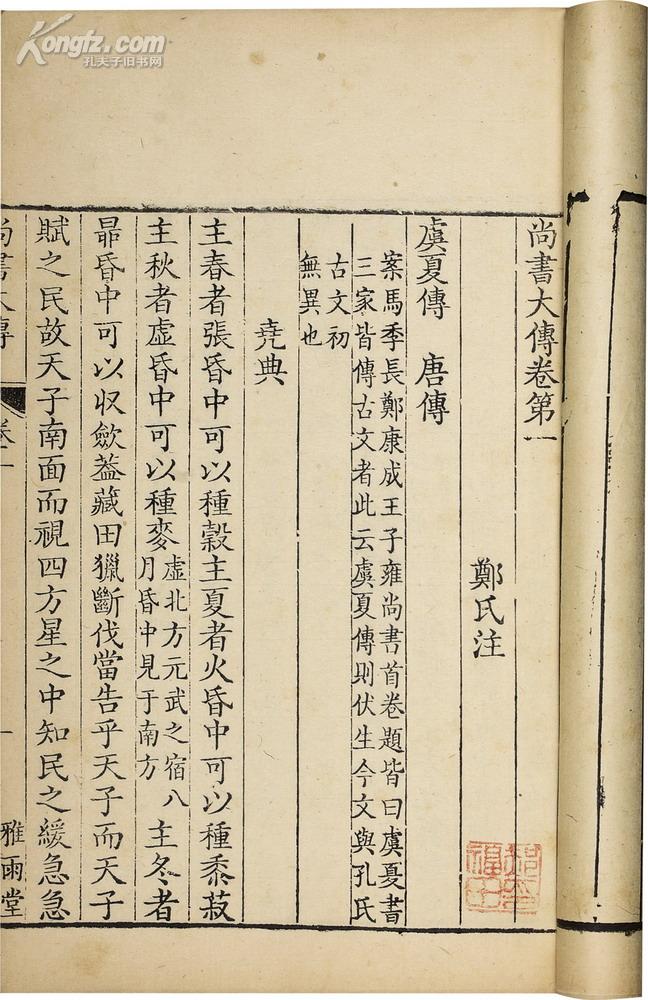 尚書大傳卷第一
鄭氏注
虞夏傳　唐傳
案馬季長鄭康成王子雍尚書首卷題皆曰虞夏書
三家皆傳古文者此云虞夏傳則伏生今文與孔氏
古文初
無異也
堯典
主春者張昏中可以種穀主夏者火昏中可以種黍菽
主秋者虛昏中可以種麥虛北方元武之宿八月昏中見于南方主冬者
昴昏中可以収斂葢藏田獵斷伐當告乎天子而天子
賦之民故天子南面而視四方星之中知民之緩急急
尚書大傳
卷一
一
雅雨堂
Kongfz.com
孔夫子旧书网